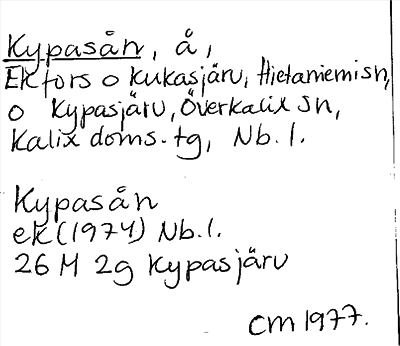 Kypasån, å,
Ekfors o Kukasjärv, Hietaniemi sn,
o Kypasjärv, Överkalix sn,
Kalix doms. tg, Nb. l.
Kypasån
ek (1974) Nb. l.
26 M 2g Kypasjärv
CM 1977.